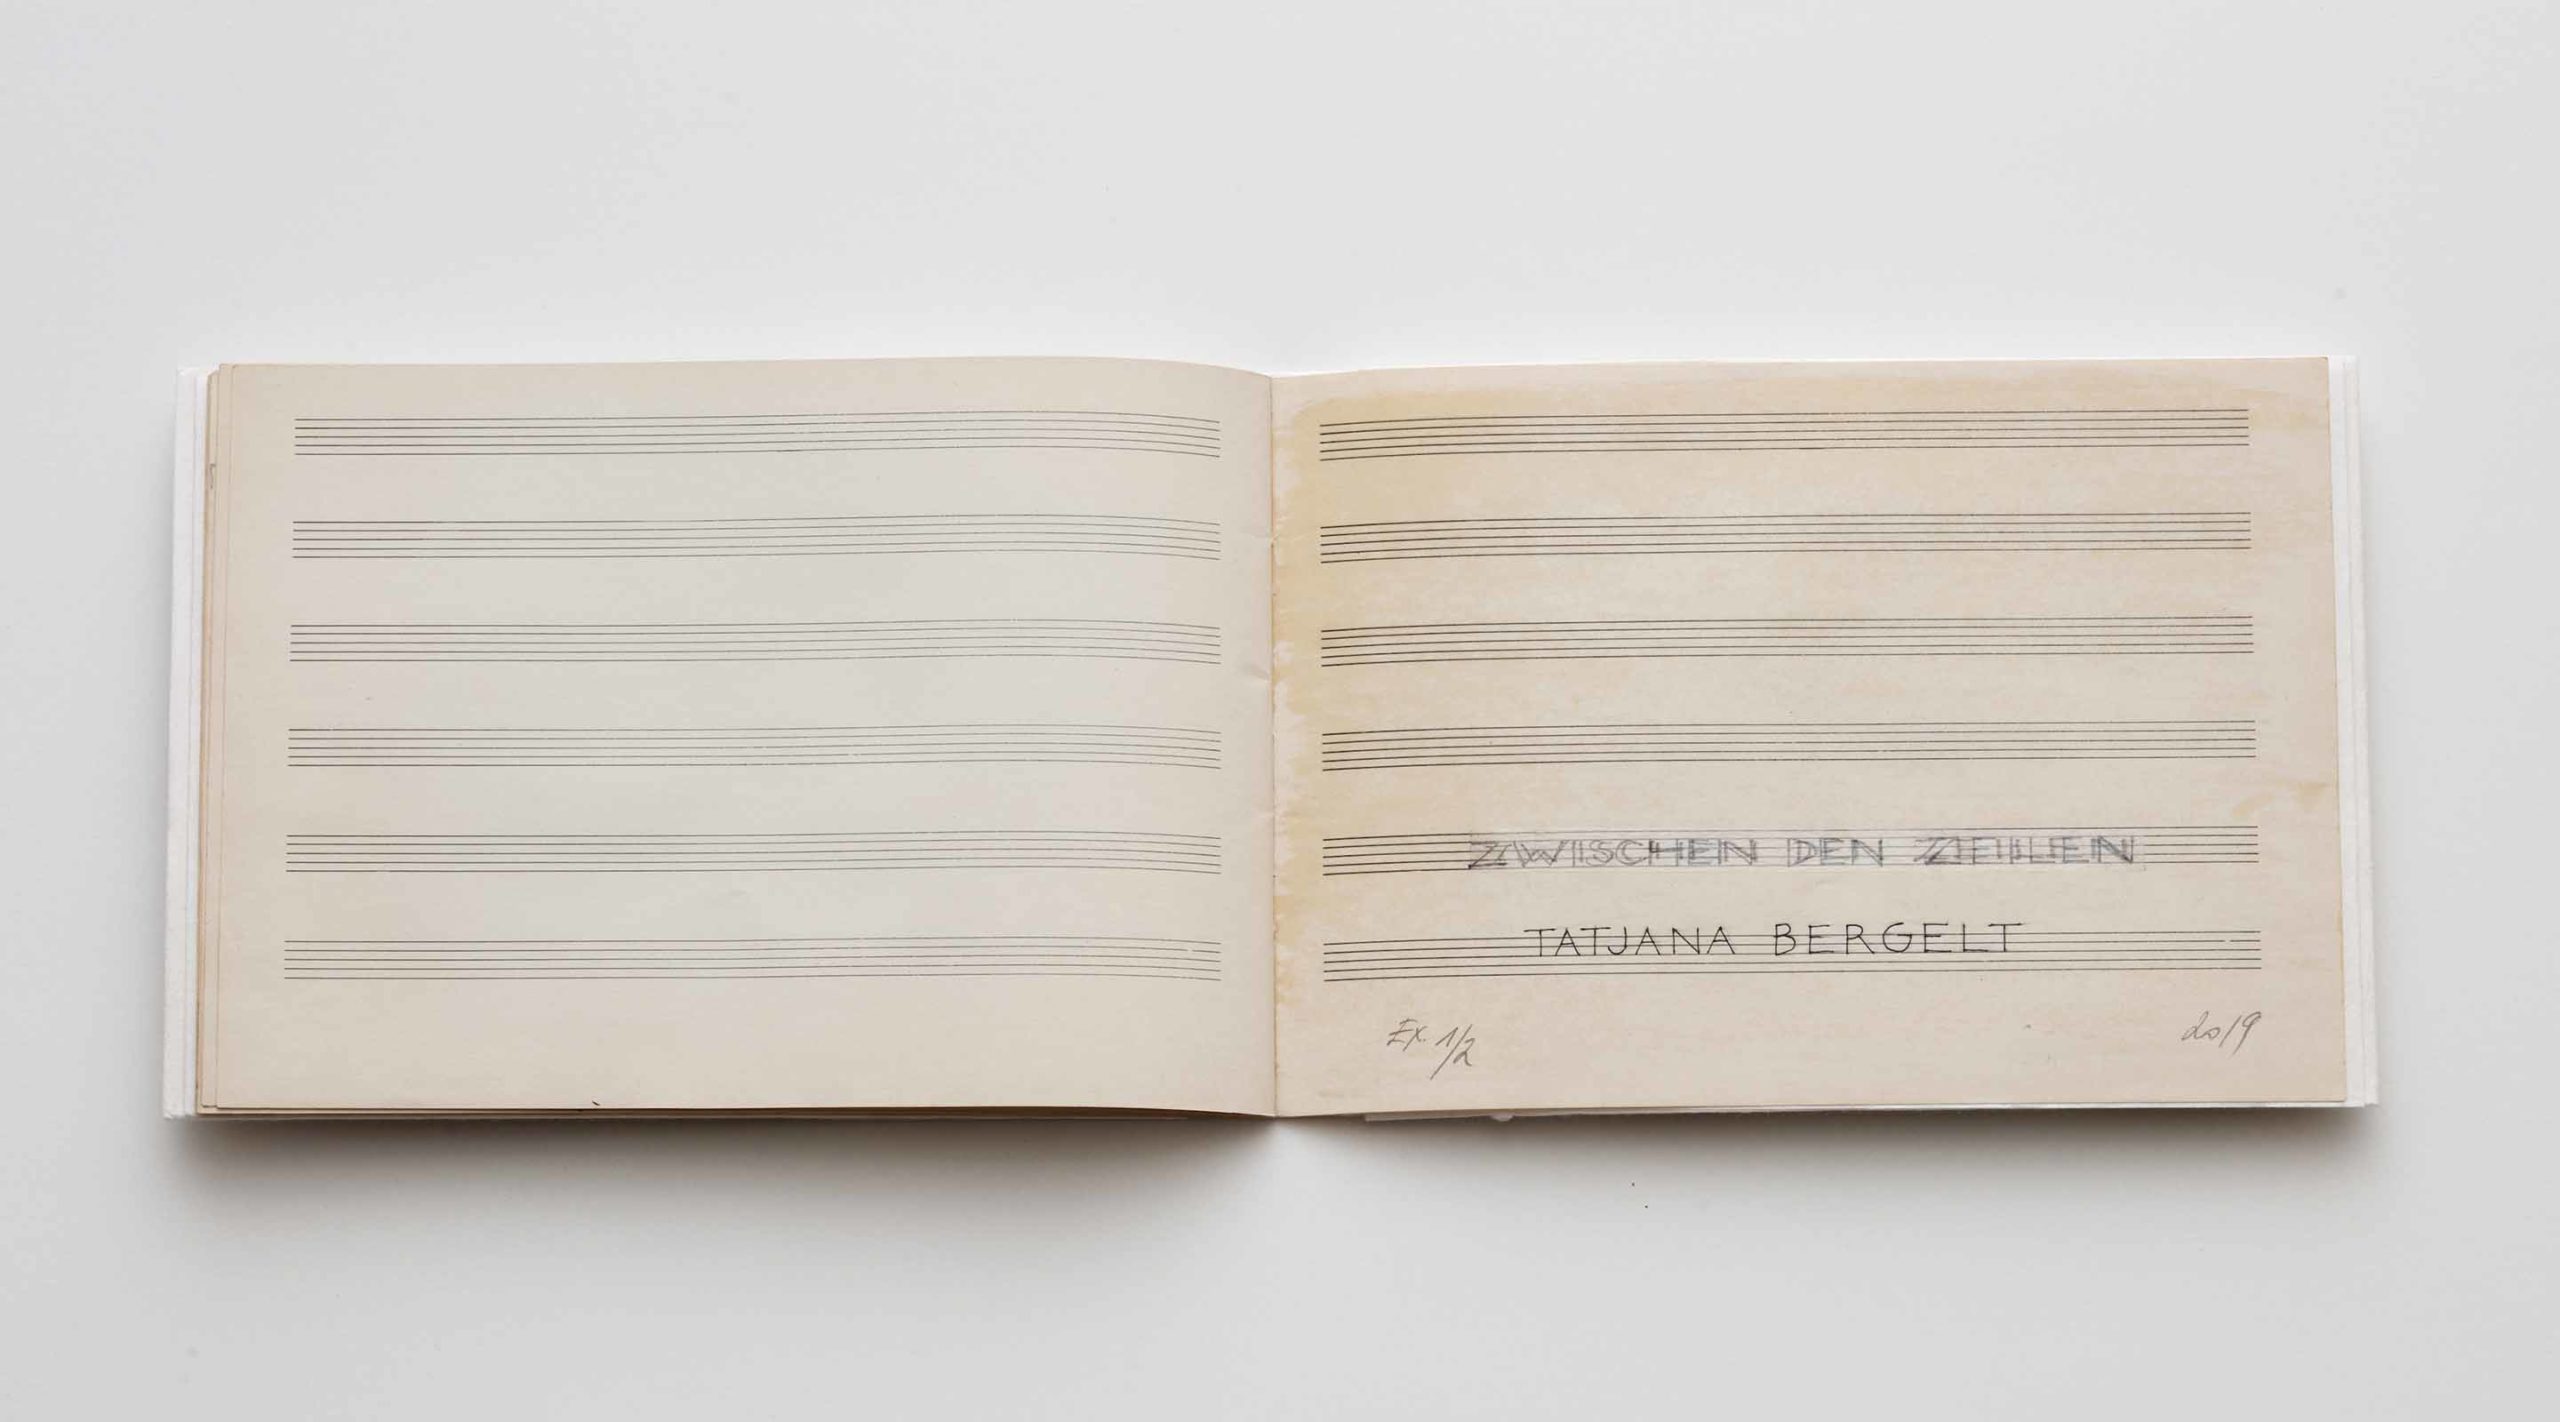 ZWISCHEN DEN ZEILEN
TATJANA BERGELT
Ex. 1/2 2019